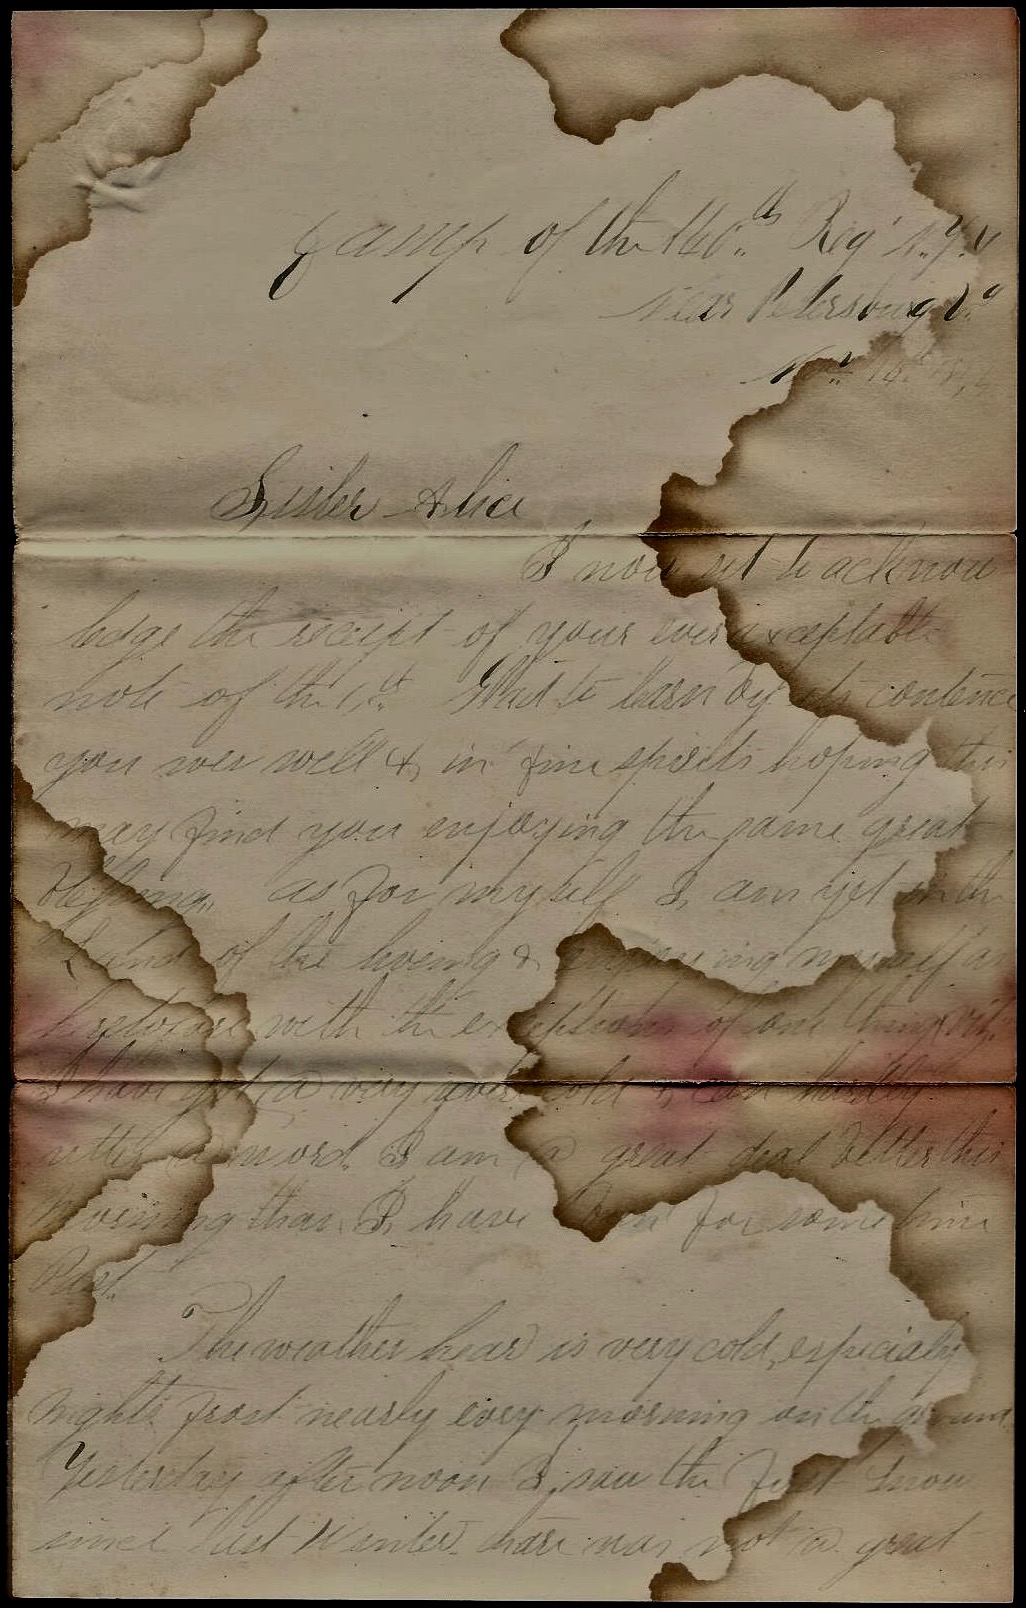 Camp of the 140.th Reg't N.Y.V
Near Petersburg Va
Nov. 14th
Sister Alice
I now sit to acknow
ledge the receipt of your ever acceptable
note of the 1st. Glad to learn by its contence
you wer well & in fine spirits hoping this
may find you enjoying the same great
Blessing. as for myself I, am yet in the
Land of the liveing & enjoying myself as
heretofore with the exceptions of one thing viz.
I have got a very severe cold & can hardly
utter a word. I am a great deal better this
Morning than I, have been for sometime
Past.
The weather hear is very cold, especialy
nights frost nearly evry morning on the ground
Yesterday after noon I, saw the first snow
since last Winter. thare was not a great